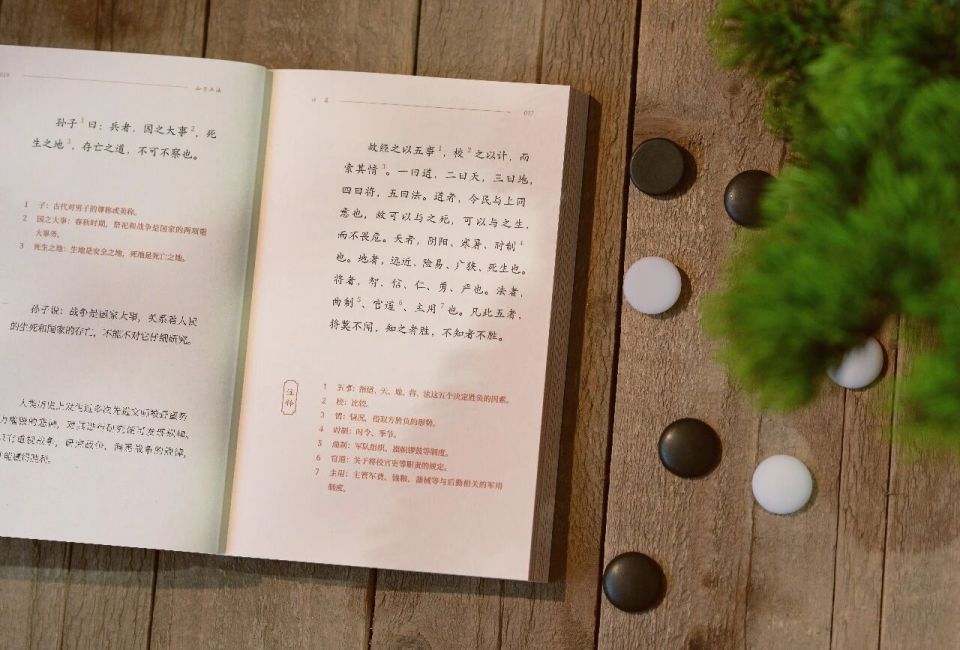 孙子兵法
孙子1曰：兵者，国之大事2，死
生之地3，存亡之道，不可不察也。
1 子：古代对男子的尊称或美称。
2 国之大事：春秋时期，祭祀和战争是国家的两项重
大事务。
3 死生之地：生地是安全之地，死地是死亡之地。
孙子说：战争是国家大事，关系着人民
的生死和国家的存亡，不能不对它仔细研究。
人类历史上
计 篇
故经之以五事1，校2之以计，而
索其情3。一曰道，二曰天，三曰地，
四曰将，五曰法。道者，令民与上同
意也，故可以与之死，可以与之生，
而不畏危。天者，阴阳、寒暑、时制4
也。地者，远近、险易、广狭、死生也。
将者，智、信、仁、勇、严也。法者，
曲制5、官道6、主用7也。凡此五者，
将莫不闻，知之者胜，不知者不胜。
注释
1 五事：指道、天、地、将、法这五个决定胜负的因素。
2 校：比较。
3 情：情况，指双方胜负的形势。
4 时制：时令、季节。
5 曲制：军队组织、旗帜锣鼓等制度。
6 官道：关于将校官吏等职责的规定。
7 主用：主管军费、钱粮、器械等与后勤相关的军用
制度。